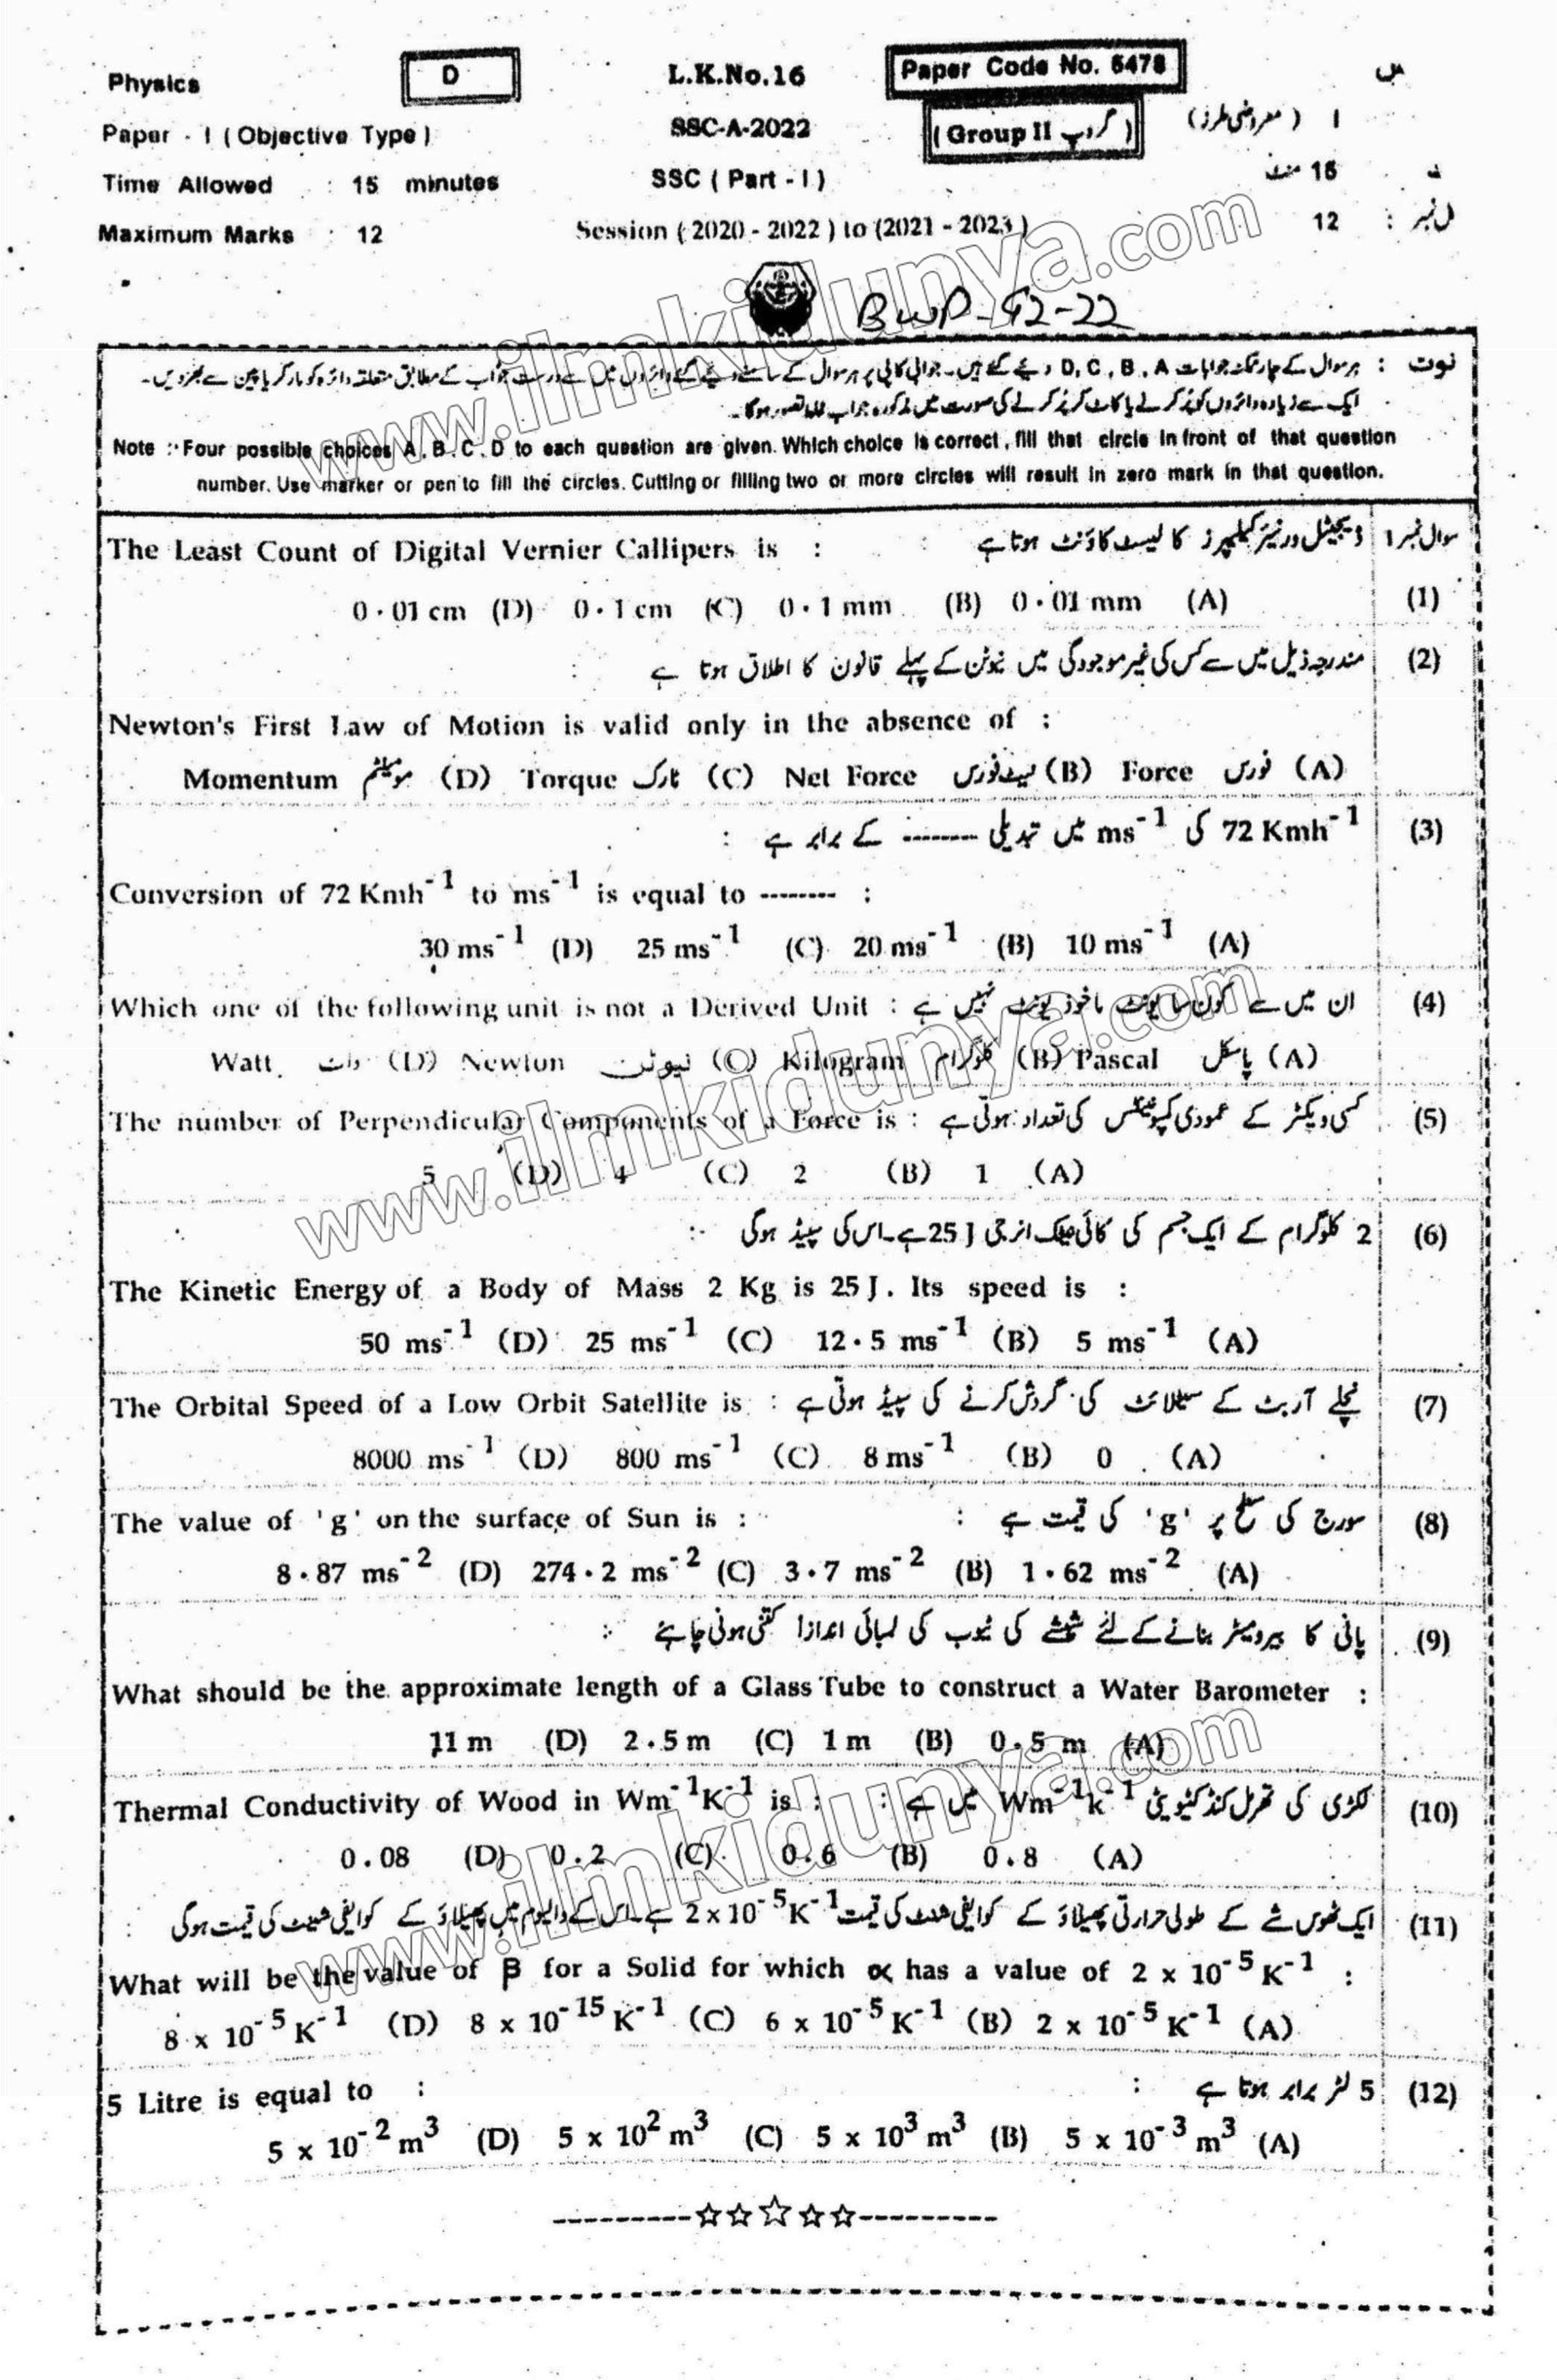 Physics
D
L.K.No.16
Paper Code No. 6478
Paper - I ( Objective Type )
SSC-A-2022
( Group II گروپ )
I ( معروضی طرز )
Time Allowed : 15 minutes
SSC ( Part - I )
15 منٹ
Maximum Marks : 12
Session ( 2020 - 2022 ) to (2021 - 2023 )
12 :
BWP-G2-22
نوت : ہر سوال کے چار ممکنہ جوابات D, C, B, A دیئے گئے ہیں۔ جوابی کاپی پر ہر سوال کے سامنے دیئے گئے دائروں میں سے درست جواب کے مطابق متعلقہ دائرہ کو مارکر یا پین سے بھر دیں۔
ایک سے زیادہ دائروں کو پُر کرنے یا کاٹ کر پُر کرنے کی صورت میں مذکورہ جواب غلط تصور ہوگا۔
Note : Four possible choices A, B, C, D to each question are given. Which choice is correct, fill that circle in front of that question
number. Use marker or pen to fill the circles. Cutting or filling two or more circles will result in zero mark in that question.
سوال نمبر 1 ڈیجیٹل ورنیئر کیلیپرز کا لیسٹ کاؤنٹ ہوتا ہے
The Least Count of Digital Vernier Callipers is :
0.01 cm (D) 0.1 cm (C) 0.1 mm (B) 0.01 mm (A) (1)
مندرجہ ذیل میں سے کس کی غیر موجودگی میں نیوٹن کے پہلے قانون کا اطلاق ہوتا ہے : (2)
Newton's First Law of Motion is valid only in the absence of :
Momentum مومینٹم (D) Torque ٹارک (C) Net Force نیٹ فورس (B) Force فورس (A)
72 Kmh⁻¹ کی ms⁻¹ میں تبدیلی -------- کے برابر ہے : (3)
Conversion of 72 Kmh⁻¹ to ms⁻¹ is equal to -------- :
30 ms⁻¹ (D) 25 ms⁻¹ (C) 20 ms⁻¹ (B) 10 ms⁻¹ (A)
Which one of the following unit is not a Derived Unit : ان میں سے کون سا یونٹ ماخوذ یونٹ نہیں ہے (4)
Watt واٹ (D) Newton نیوٹن (C) Kilogram کلوگرام (B) Pascal پاسکل (A)
The number of Perpendicular Components of a Force is : کسی ویکٹر کے عمودی کمپونینٹس کی تعداد ہوتی ہے (5)
5 (D) 4 (C) 2 (B) 1 (A)
2 کلوگرام کے ایک جسم کی کائی نیٹک انرجی 25 J ہے۔ اس کی سپیڈ ہوگی : (6)
The Kinetic Energy of a Body of Mass 2 Kg is 25 J. Its speed is :
50 ms⁻¹ (D) 25 ms⁻¹ (C) 12.5 ms⁻¹ (B) 5 ms⁻¹ (A)
The Orbital Speed of a Low Orbit Satellite is : نچلے آربٹ کے سیٹلائٹ کی گردش کرنے کی سپیڈ ہوتی ہے (7)
8000 ms⁻¹ (D) 800 ms⁻¹ (C) 8 ms⁻¹ (B) 0 (A)
The value of 'g' on the surface of Sun is : سورج کی سطح پر 'g' کی قیمت ہے : (8)
8.87 ms⁻² (D) 274.2 ms⁻² (C) 3.7 ms⁻² (B) 1.62 ms⁻² (A)
پانی کا بیرومیٹر بنانے کے لئے شیشے کی ٹیوب کی لمبائی اندازا کتنی ہونی چاہئے : (9)
What should be the approximate length of a Glass Tube to construct a Water Barometer :
11 m (D) 2.5 m (C) 1 m (B) 0.5 m (A)
Thermal Conductivity of Wood in Wm⁻¹K⁻¹ is : لکڑی کی تھرمل کنڈکٹیویٹی Wm⁻¹k⁻¹ میں ہے : (10)
0.08 (D) 0.2 (C) 0.6 (B) 0.8 (A)
ایک ٹھوس شے کے طولی حرارتی پھیلاؤ کے کوایفی شنٹ کی قیمت 2 x 10⁻⁵K⁻¹ ہے۔ اس کے والیوم میں پھیلاؤ کے کوایفی شینٹ کی قیمت ہوگی : (11)
What will be the value of β for a Solid for which α has a value of 2 x 10⁻⁵K⁻¹ :
8 x 10⁻⁵K⁻¹ (D) 8 x 10⁻¹⁵K⁻¹ (C) 6 x 10⁻⁵K⁻¹ (B) 2 x 10⁻⁵K⁻¹ (A)
5 Litre is equal to : 5 لٹر برابر ہوتا ہے : (12)
5 x 10⁻²m³ (D) 5 x 10²m³ (C) 5 x 10³m³ (B) 5 x 10⁻³m³ (A)
www.ilmkidunya.com
www.ilmkidunya.com
www.ilmkidunya.com